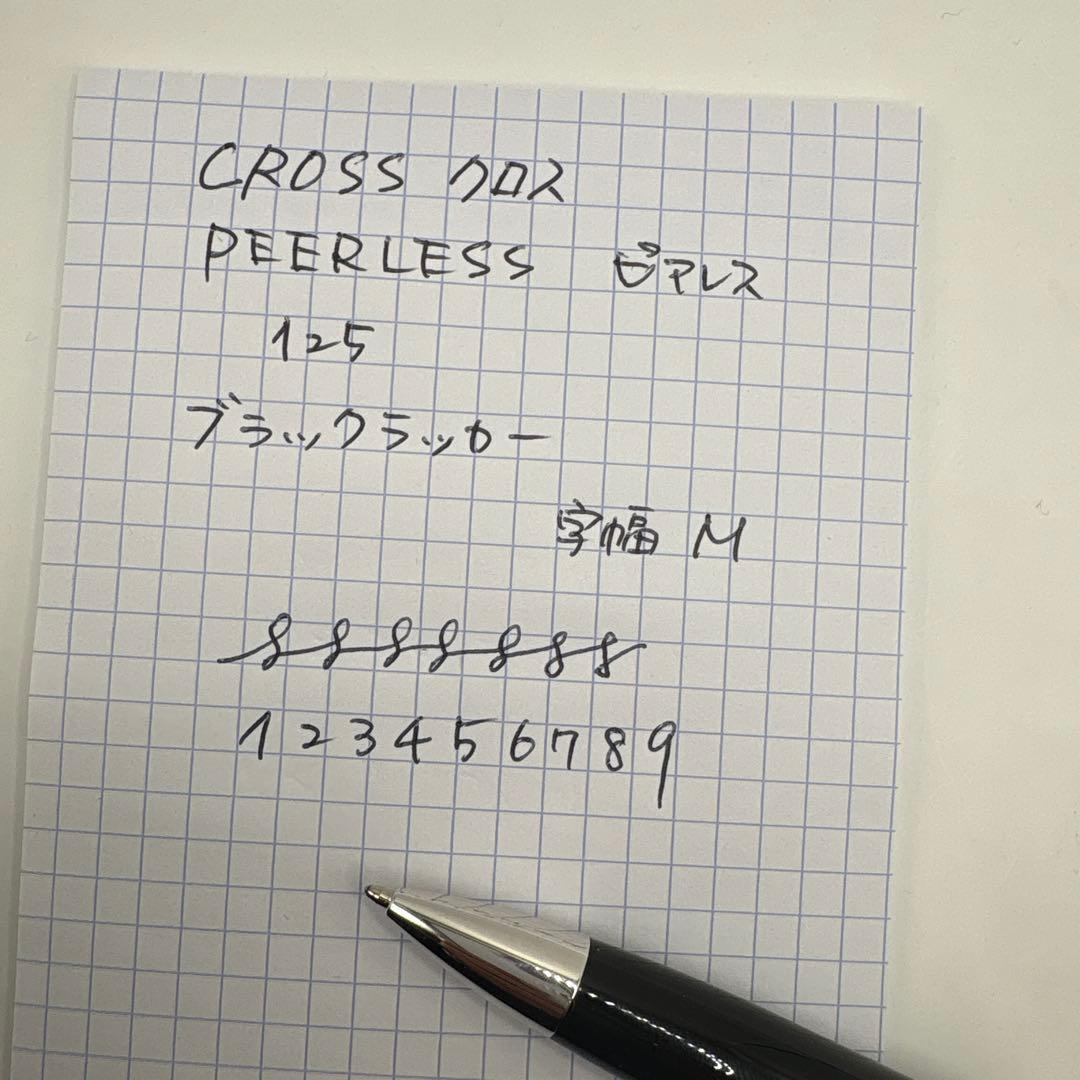 CROSS クロス
PEERLESS ピアレス
125
ブラックラッカー
字幅 M
1 2 3 4 5 6 7 8 9